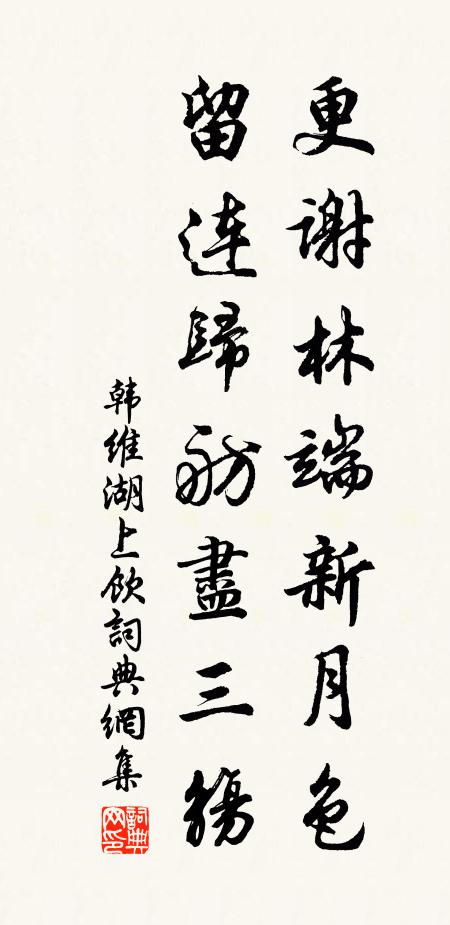 更謝林端新月色
留連歸舫盡三觴
韩維湖上飲詞典網集
詞典網印